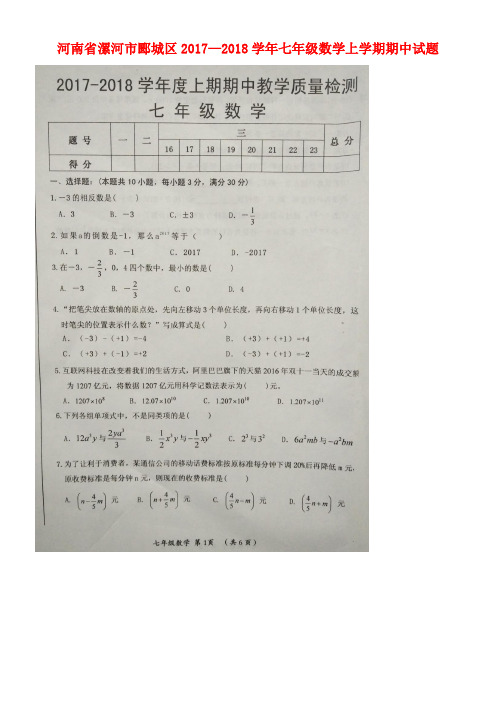 河南省漯河市郾城区2017—2018学年七年级数学上学期期中试题
2017-2018学年度上期期中教学质量检测
七年级数学
题号 一 二 三 总分
16 17 18 19 20 21 22 23
得分
一、选择题:(本题共10小题,每小题3分,满分30分)
1.-3的相反数是( )
A. 3 B. -3 C. ±3 D. -1/3
2.如果a的倒数是-1,那么a²⁰¹⁷等于( )
A. 1 B. -1 C. 2017 D. -2017
3.在-3,-2/3,0,4四个数中,最小的数是( )
A. -3 B. -2/3 C. 0 D. 4
4.“把笔尖放在数轴的原点处,先向左移动3个单位长度,再向右移动1个单位长度,这
时笔尖的位置表示什么数?”写成算式是( )
A. (-3)-(+1)=-4 B. (+3)+(+1)=+4
C. (+3)+(-1)=+2 D. (-3)+(+1)=-2
5.互联网科技在改变着我们的生活方式,阿里巴巴旗下的天猫2016年双十一当天的成交额
为1207亿元,将数据1207亿元用科学记数法表示为( )元。
A. 1207×10⁸ B. 12.07×10¹⁰ C. 1.207×10¹⁰ D. 1.207×10¹¹
6.下列各组单项式中,不是同类项的是( )
A. 12a³y与2ya³/3 B. 1/2x³y与-1/2xy³ C. 2³与3² D. 6a²mb与-a²bm
7.为了让利于消费者,某通信公司的移动话费标准按原标准每分钟下调20%后再降低m元,
原收费标准是每分钟n元,则现在的收费标准是( )
A. (n-4/5m)元 B. (n+4/5m)元 C. (4/5n-m)元 D. (4/5n+m)元
七年级数学 第1页 (共6页)